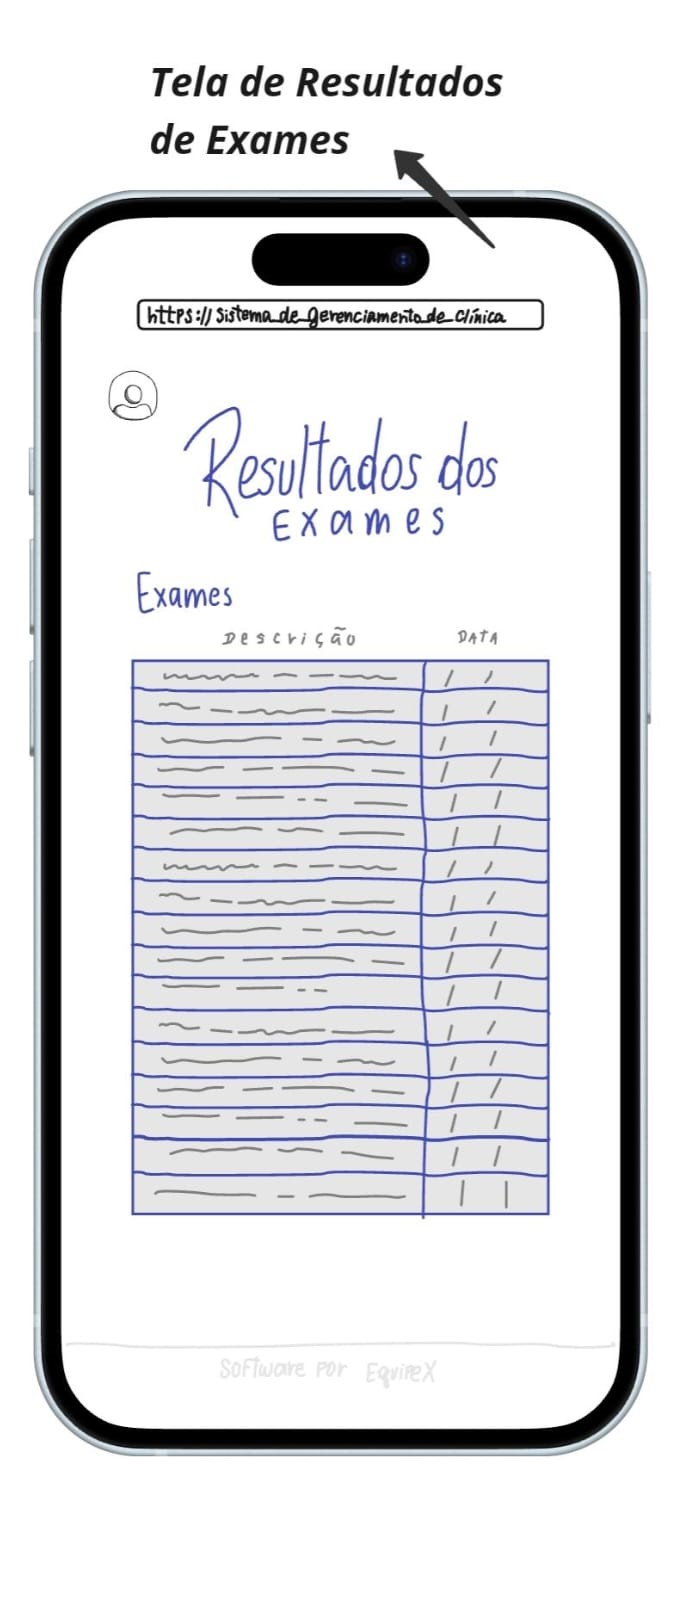 Tela de Resultados
de Exames
https://Sistema_de_gerenciamento_de_Clínica
Resultados dos
Exames
Exames
Descrição DATA
Software por EquipeX